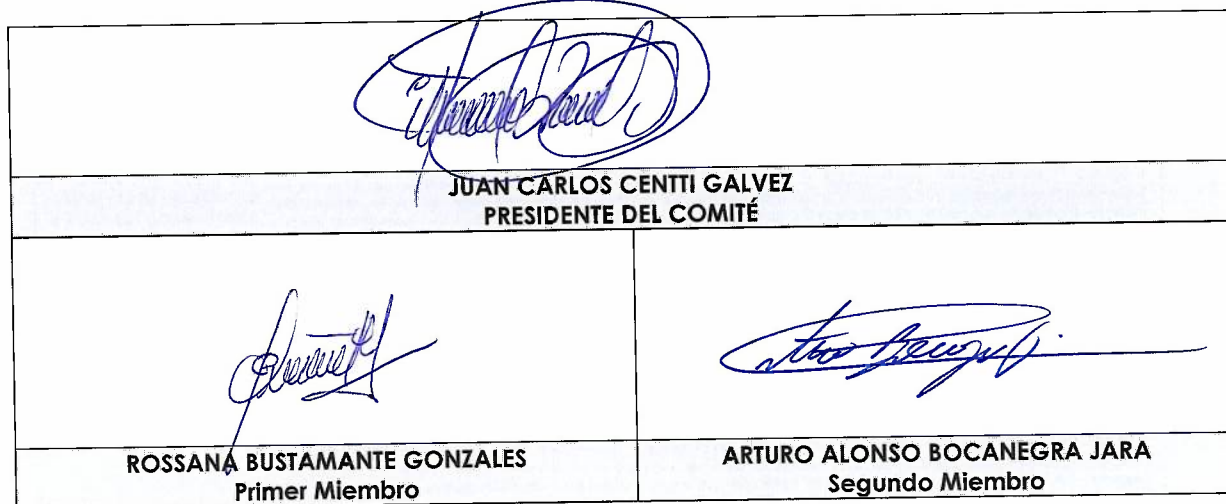 JUAN CARLOS CENTTI GALVEZ
PRESIDENTE DEL COMITÉ
ROSSANA BUSTAMANTE GONZALES
Primer Miembro
ARTURO ALONSO BOCANEGRA JARA
Segundo Miembro